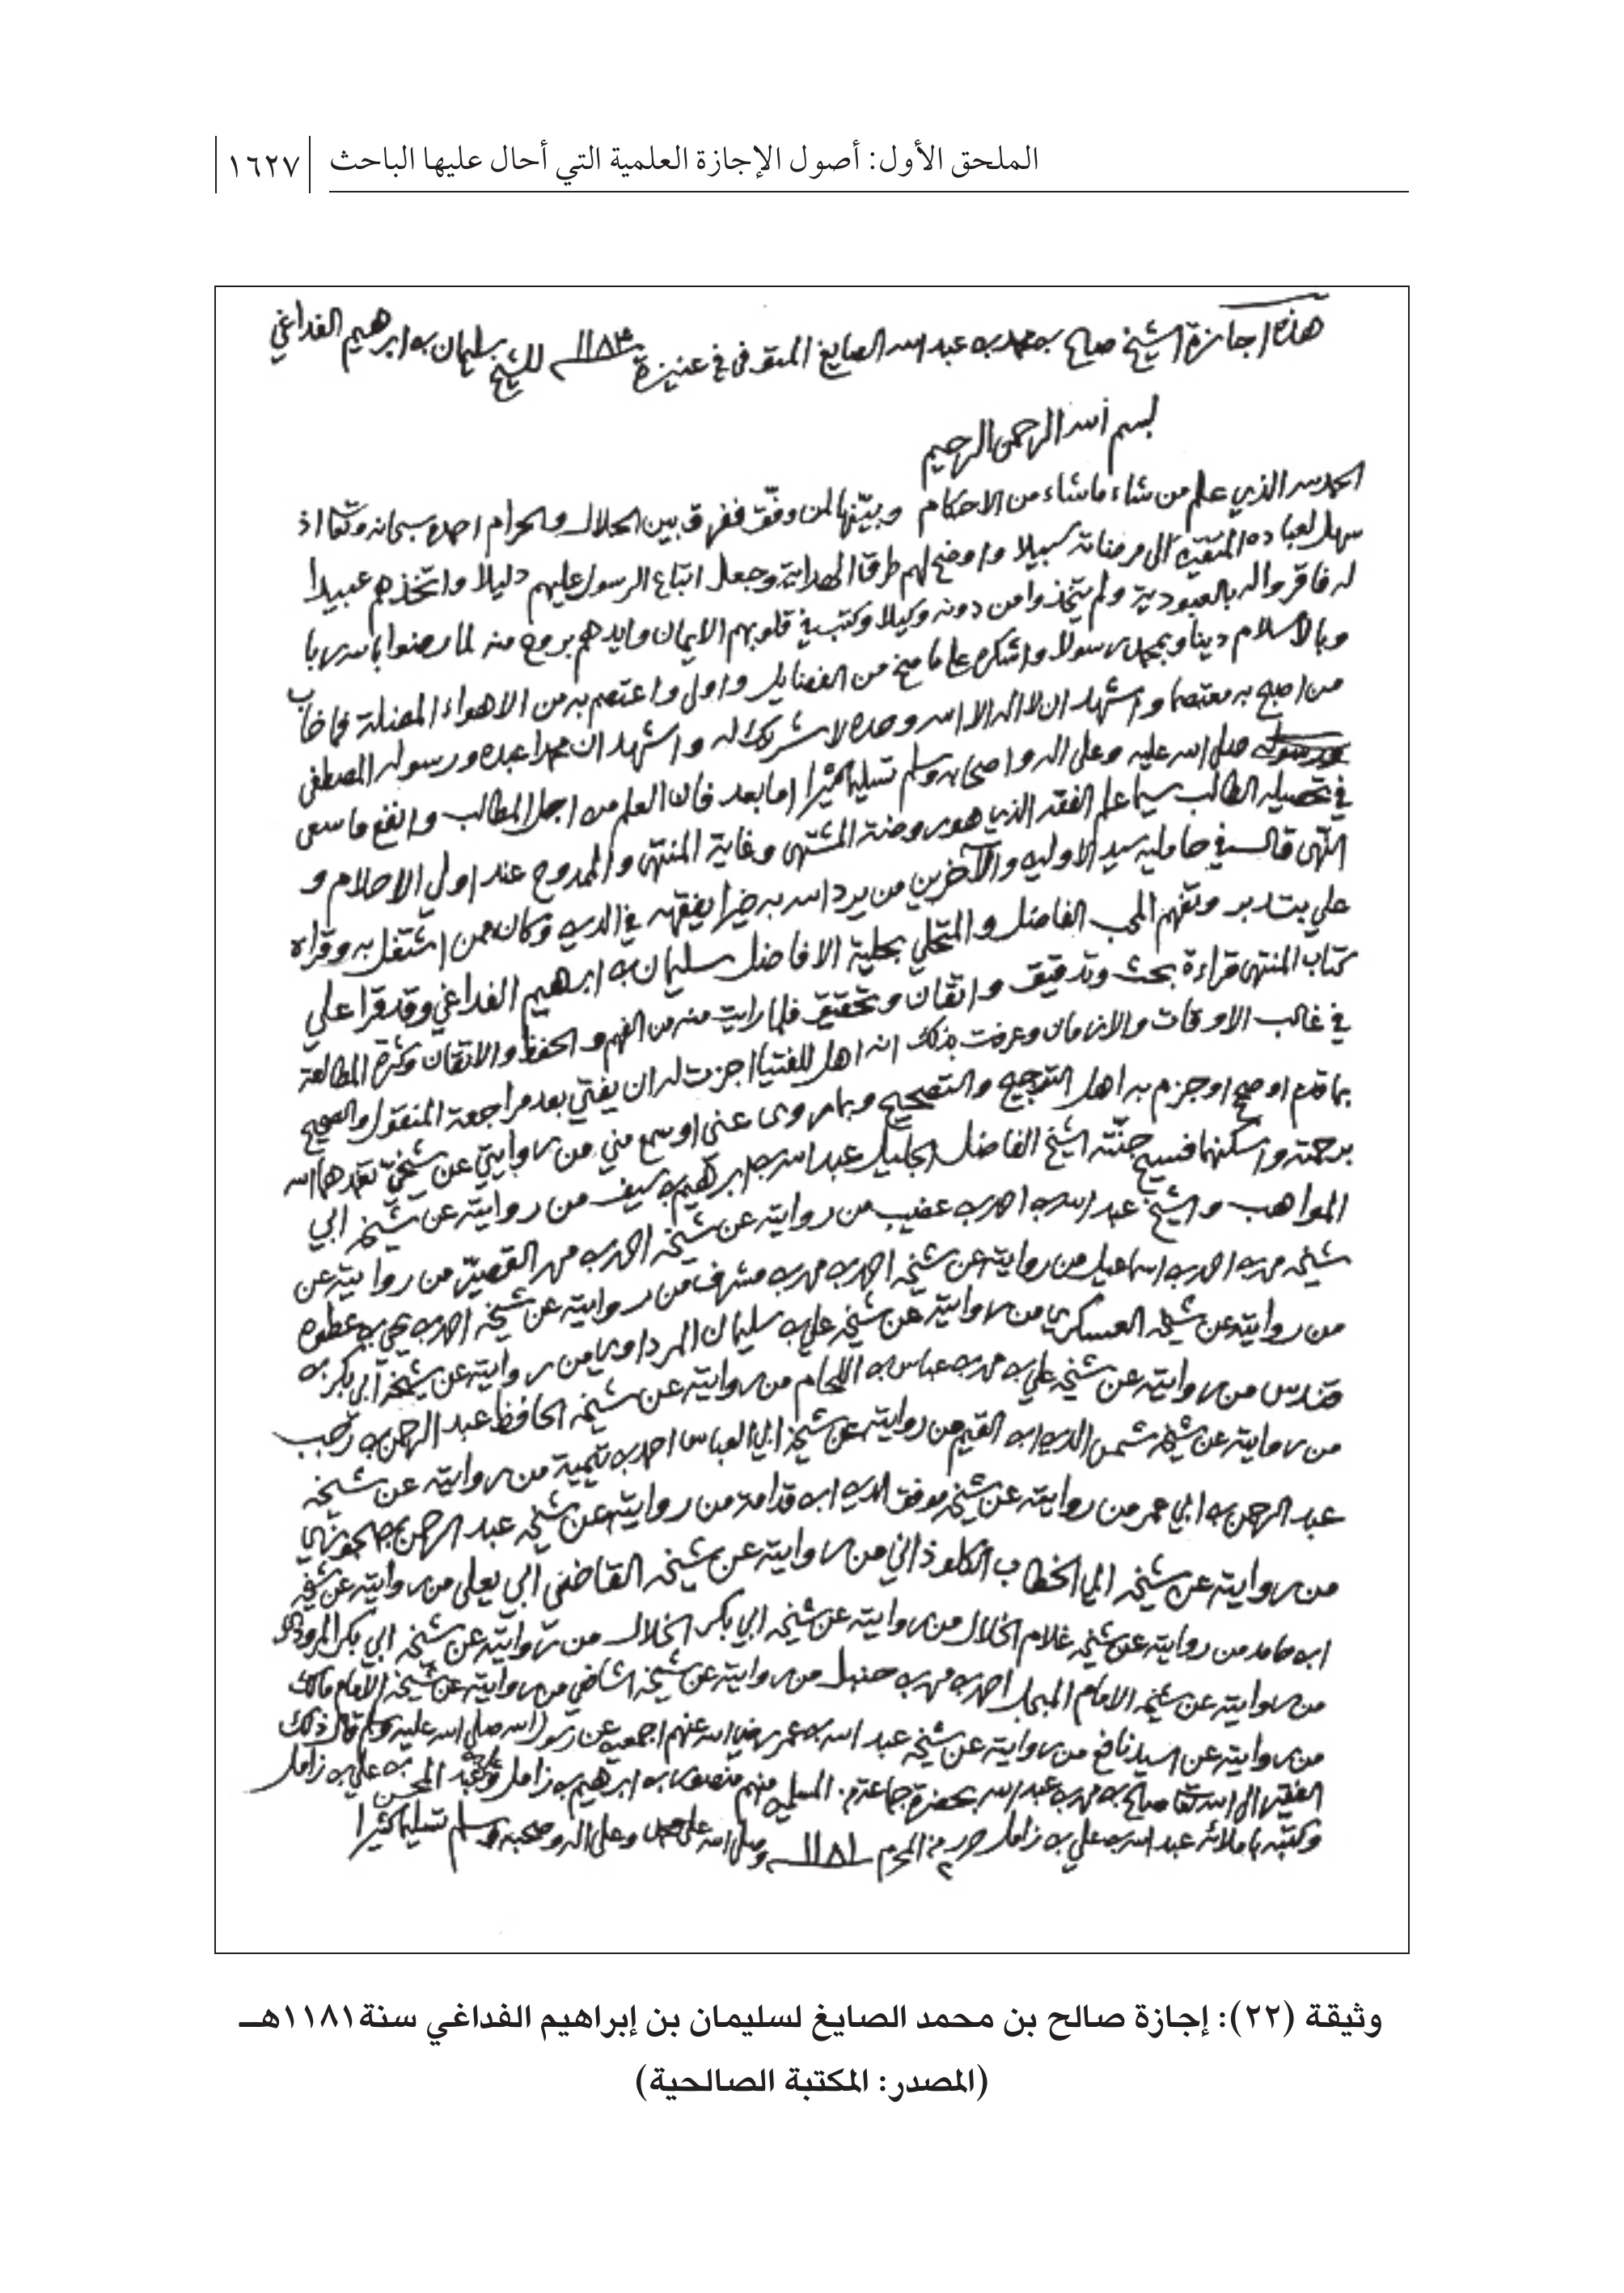 الملحق الأول: أصول الإجازة العلمية التي أحال عليها الباحث ١٦٢٧
هذه اجازة الشيخ صالح بن محمد بن عبد الله الصايغ المتوفى في عنيزة ١١٨٤ للشيخ سليمان بن ابرهيم الفداغي
بسم الله الرحمن الرحيم
الحمد لله الذي علم من شاء ما شاء من الاحكام وبيّنها لمن وفّق ففرق بين الحلال والحرام احمده سبحانه وتعا اذ
سهل لعباده المتقين الى مرضاته سبيلا واوضح لهم طرق الهداية وجعل اتباع الرسول عليهم دليلا واتخذهم عبيدا
له فاقروا له بالعبودية ولم يتخذوا من دونه وكيلا وكتب في قلوبهم الايمان وايدهم بروح منه لما رضوا بالله ربا
وبالاسلام دينا وبمحمد رسولا واشكره على ما منح من الفضايل واولى واعتصم به من الاهواء المضلة فما خاب
من اصبح به معتصما واشهد ان لا اله الا الله وحده لا شريك له واشهد ان محمدا عبده ورسوله المصطفى
صلى الله عليه وعلى اله واصحابه وسلم تسليما كثيرا اما بعد فان العلم من اجل المطالب وانفع ما سعى
في تحصيله الطالب سيما علم الفقه الذي هو روضة المشتهى وغاية المنتهى والممدوح عند اولي الاحلام و
النهى قال في حامليه سيد الاولين والآخرين من يرد الله به خيرا يفقهه في الدين وكان ممن اشتغل به وقراه
علي بتدبر وتفهم المحب الفاضل والمتحلي بحلية الافاضل سليمان بن ابرهيم الفداغي وقد قرا علي
كتاب المنتهى قراءة بحث وتدقيق واتقان وتحقيق فلما رايت منه من الفهم والحفظ والاتقان وكثرة المطالعة
في غالب الاوقات والازمان وعرفت بذلك انه اهل للفتيا اجزت له ان يفتي بعد مراجعة المنقول والصحيح
بما قدم او صح او جزم به اهل الترجيح والتصحيح وبما روى عني او سمع مني من روايتي عن شيخيّ تغمدهما الله
برحمته واسكنهما فسيح جنّته الشيخ الفاضل الجليل عبد الله بن ابرهيم بن سيف من روايته عن شيخه ابي
المواهب والشيخ عبد الله بن احمد بن عضيب من روايته عن شيخه احمد بن محمد القصيّر من روايته عن
شيخه محمد بن احمد بن اسماعيل من روايته عن شيخه احمد بن محمد بن مشرف من روايته عن شيخه احمد بن يحي بن عطوه
من روايته عن شيخه العسكري من روايته عن شيخه علي بن سليمان المرداوي من روايته عن شيخه ابي بكر بن
قندس من روايته عن شيخه علي بن محمد بن عباس بن اللحام من روايته عن شيخه الحافظ عبد الرحمن بن رجب
من روايته عن شيخه شمس الدين ابن القيم من روايته عن شيخه ابي العباس احمد بن تيمية من روايته عن شيخه
عبد الرحمن بن ابي عمر من روايته عن شيخه موفق الدين ابن قدامة من روايته عن شيخه عبد الرحمن بن الجوزي
من روايته عن شيخه ابي الخطاب الكلوذاني من روايته عن شيخه القاضي ابي يعلى من روايته عن شيخه
ابن حامد من روايته عن شيخه غلام الخلال من روايته عن شيخه ابي بكر الخلال من روايته عن شيخه ابي بكر المروذي
من روايته عن شيخه الامام المبجل احمد بن محمد بن حنبل من روايته عن شيخه الشافعي من روايته عن شيخه الامام مالك
من روايته عن السيد نافع من روايته عن شيخه عبد الله بن عمر رضي الله عنهم اجمعين عن رسول الله صلى الله عليه وسلم قال ذلك
الفقير الى الله تعا صالح بن محمد بن عبد الله بحضرة جماعة من المسلمين منهم منصور بن ابرهيم بن زامل وعبد المحسن بن علي بن زامل
وكتبه باملائه عبد الله بن علي بن زامل من المحرم ١١٨١ وصلى الله على محمد وعلى اله وصحبه وسلم تسليما كثيرا
وثيقة (٢٢): إجازة صالح بن محمد الصايغ لسليمان بن إبراهيم الفداغي سنة ١١٨١هـ
(المصدر: المكتبة الصالحية)